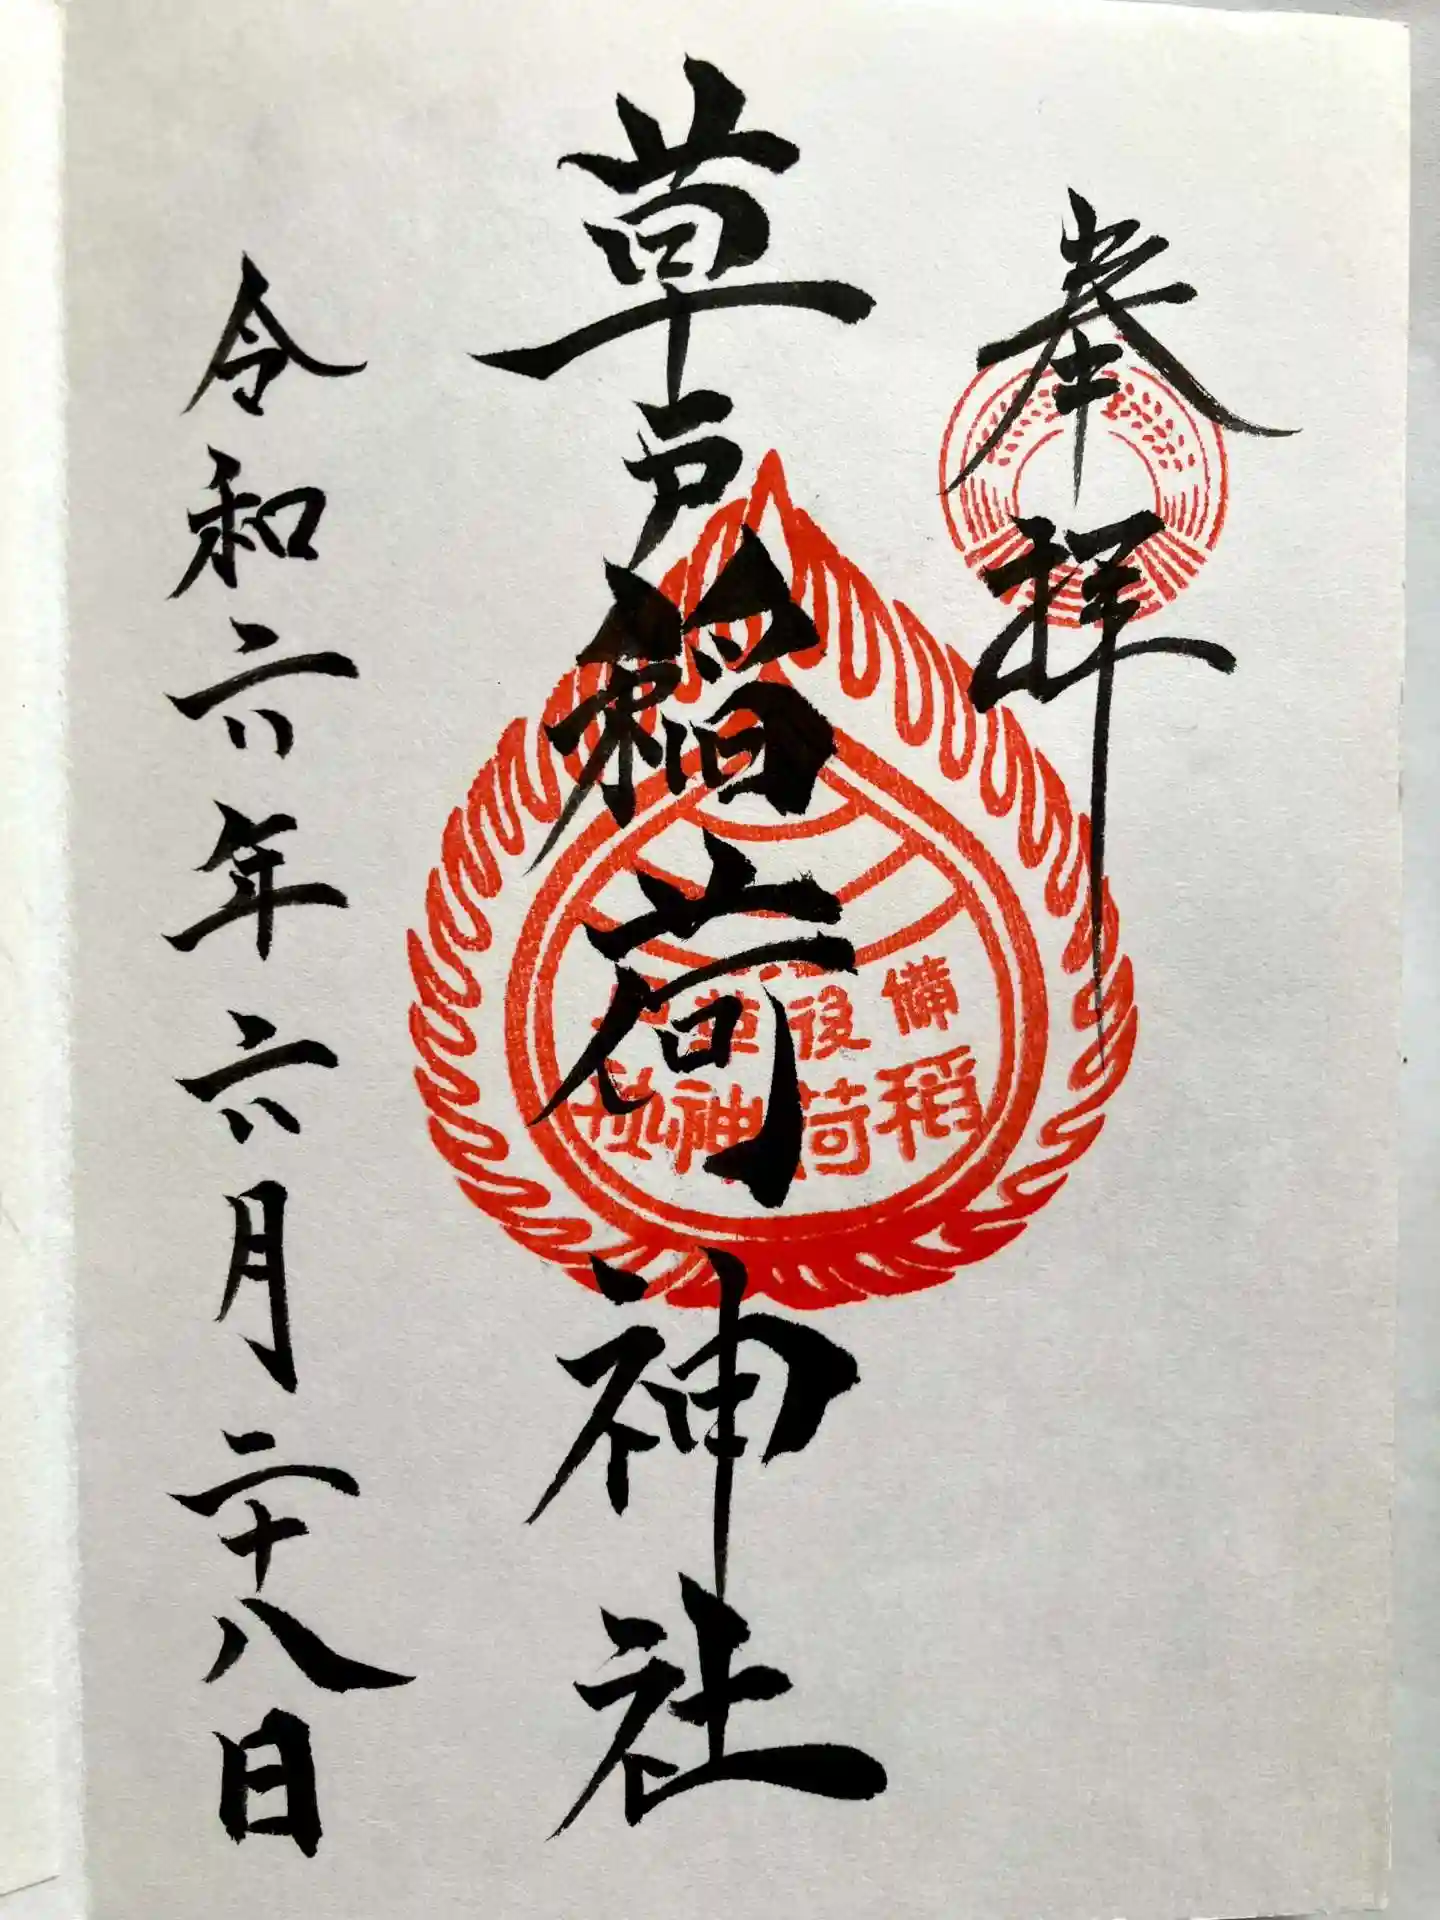 奉拝
草戸稲荷神社
備後草戸
稲荷神社
令和六年六月二十八日